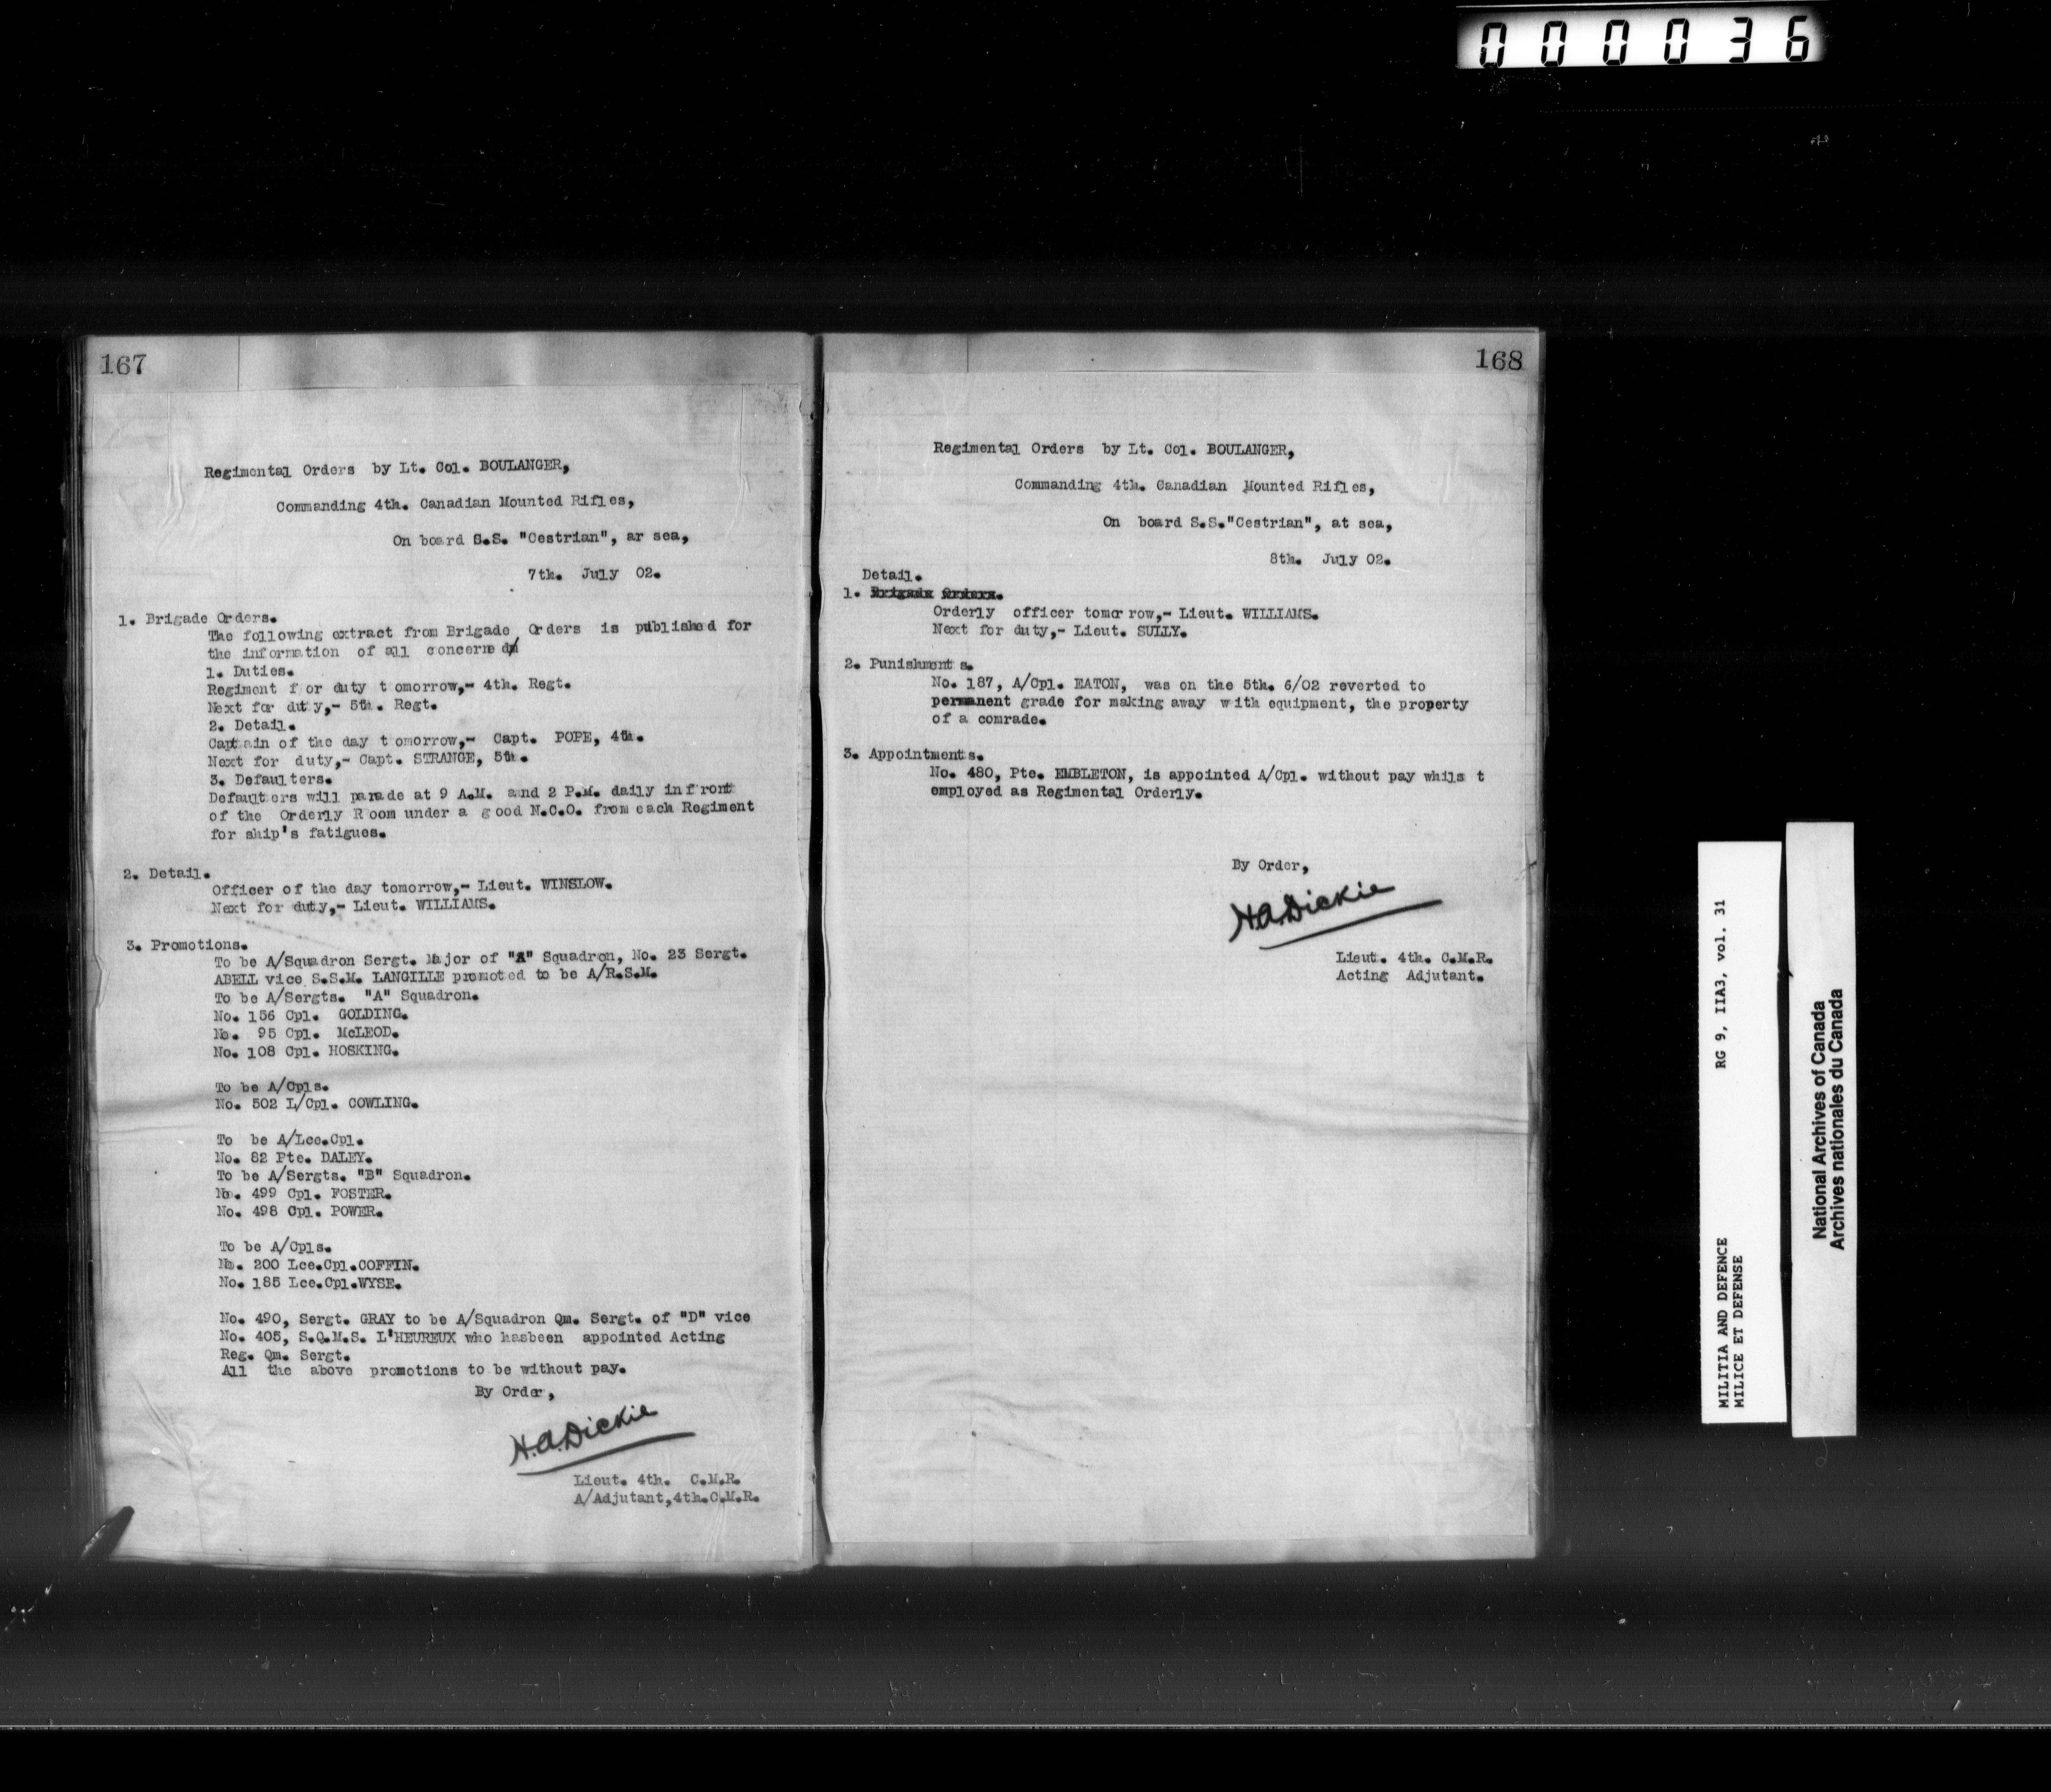 000036
167
Regimental Orders by Lt. Col. BOULANGER,
Commanding 4th. Canadian Mounted Rifles,
On board S.S. "Cestrian", ar sea,
7th. July 02.
1. Brigade Orders.
The following extract from Brigade Orders is published for
the information of all concerned
1. Duties.
Regiment for duty tomorrow,- 4th. Regt.
Next for duty,- 5th. Regt.
2. Detail.
Captain of the day tomorrow,- Capt. POPE, 4th.
Next for duty,- Capt. STRANGE, 5th.
3. Defaulters.
Defaulters will parade at 9 A.M. and 2 P.M. daily in front
of the Orderly Room under a good N.C.O. from each Regiment
for ship's fatigues.
2. Detail.
Officer of the day tomorrow,- Lieut. WINSLOW.
Next for duty,- Lieut. WILLIAMS.
3. Promotions.
To be A/Squadron Sergt. Major of "A" Squadron, No. 23 Sergt.
ABELL vice S.S.M. LANGILLE promoted to be A/R.S.M.
To be A/Sergts. "A" Squadron.
No. 156 Cpl. GOLDING.
No. 95 Cpl. McLEOD.
No. 108 Cpl. HOSKING.
To be A/Cpls.
No. 502 L/Cpl. COWLING.
To be A/Lce.Cpl.
No. 82 Pte. DALEY.
To be A/Sergts. "B" Squadron.
No. 499 Cpl. FOSTER.
No. 498 Cpl. POWER.
To be A/Cpls.
No. 200 Lce.Cpl.COFFIN.
No. 185 Lce.Cpl.WYSE.
No. 490, Sergt. GRAY to be A/Squadron Qm. Sergt. of "D" vice
No. 405, S.Q.M.S. L'HEUREUX who hasbeen appointed Acting
Reg. Qm. Sergt.
All the above promotions to be without pay.
By Order,
H.A.Dickie
Lieut. 4th. C.M.R.
A/Adjutant,4th.C.M.R.
168
Regimental Orders by Lt. Col. BOULANGER,
Commanding 4th. Canadian Mounted Rifles,
On board S.S."Cestrian", at sea,
8th. July 02.
Detail.
1. Brigade Orders.
Orderly officer tomorrow,- Lieut. WILLIAMS.
Next for duty,- Lieut. SULLY.
2. Punishments.
No. 187, A/Cpl. EATON, was on the 5th. 6/02 reverted to
permanent grade for making away with equipment, the property
of a comrade.
3. Appointments.
No. 480, Pte. EMBLETON, is appointed A/Cpl. without pay whilst
employed as Regimental Orderly.
By Order,
H.A.Dickie
Lieut. 4th. C.M.R.
Acting Adjutant.
MILITIA AND DEFENCE RG 9, IIA3, vol. 31
MILICE ET DEFENSE
National Archives of Canada
Archives nationales du Canada